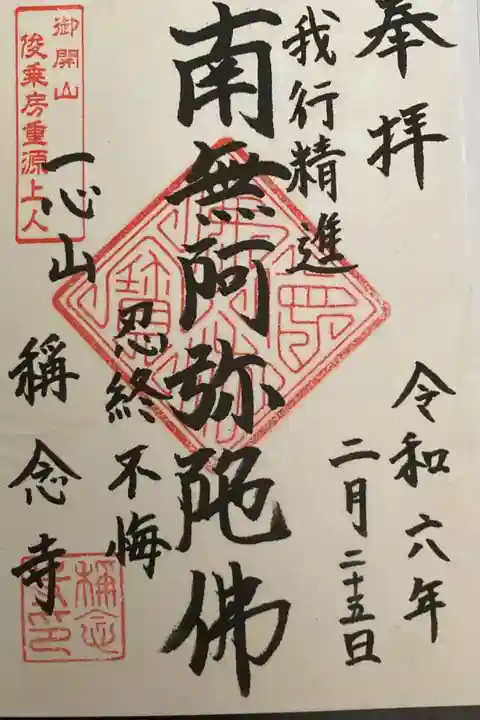 奉拝
令和六年
二月二十五日
我行精進
南無阿弥陀佛
忍終不悔
一心山 稱念寺
御開山
俊乗房重源上人